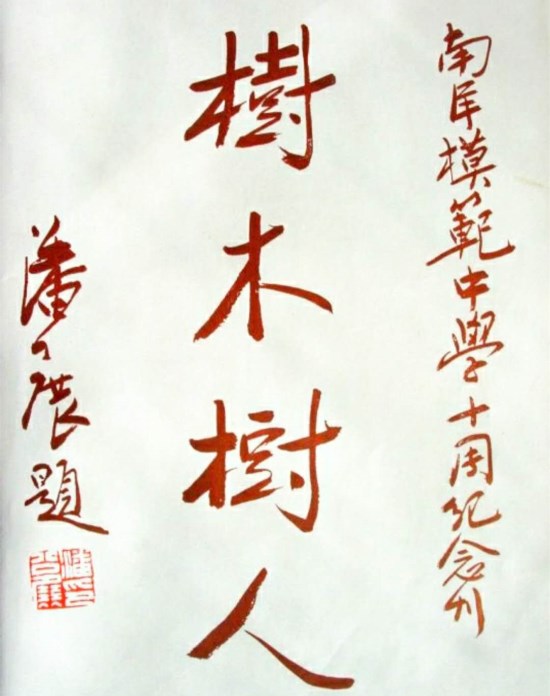 南洋模範中學十周紀念刊
樹木樹人
潘公展題